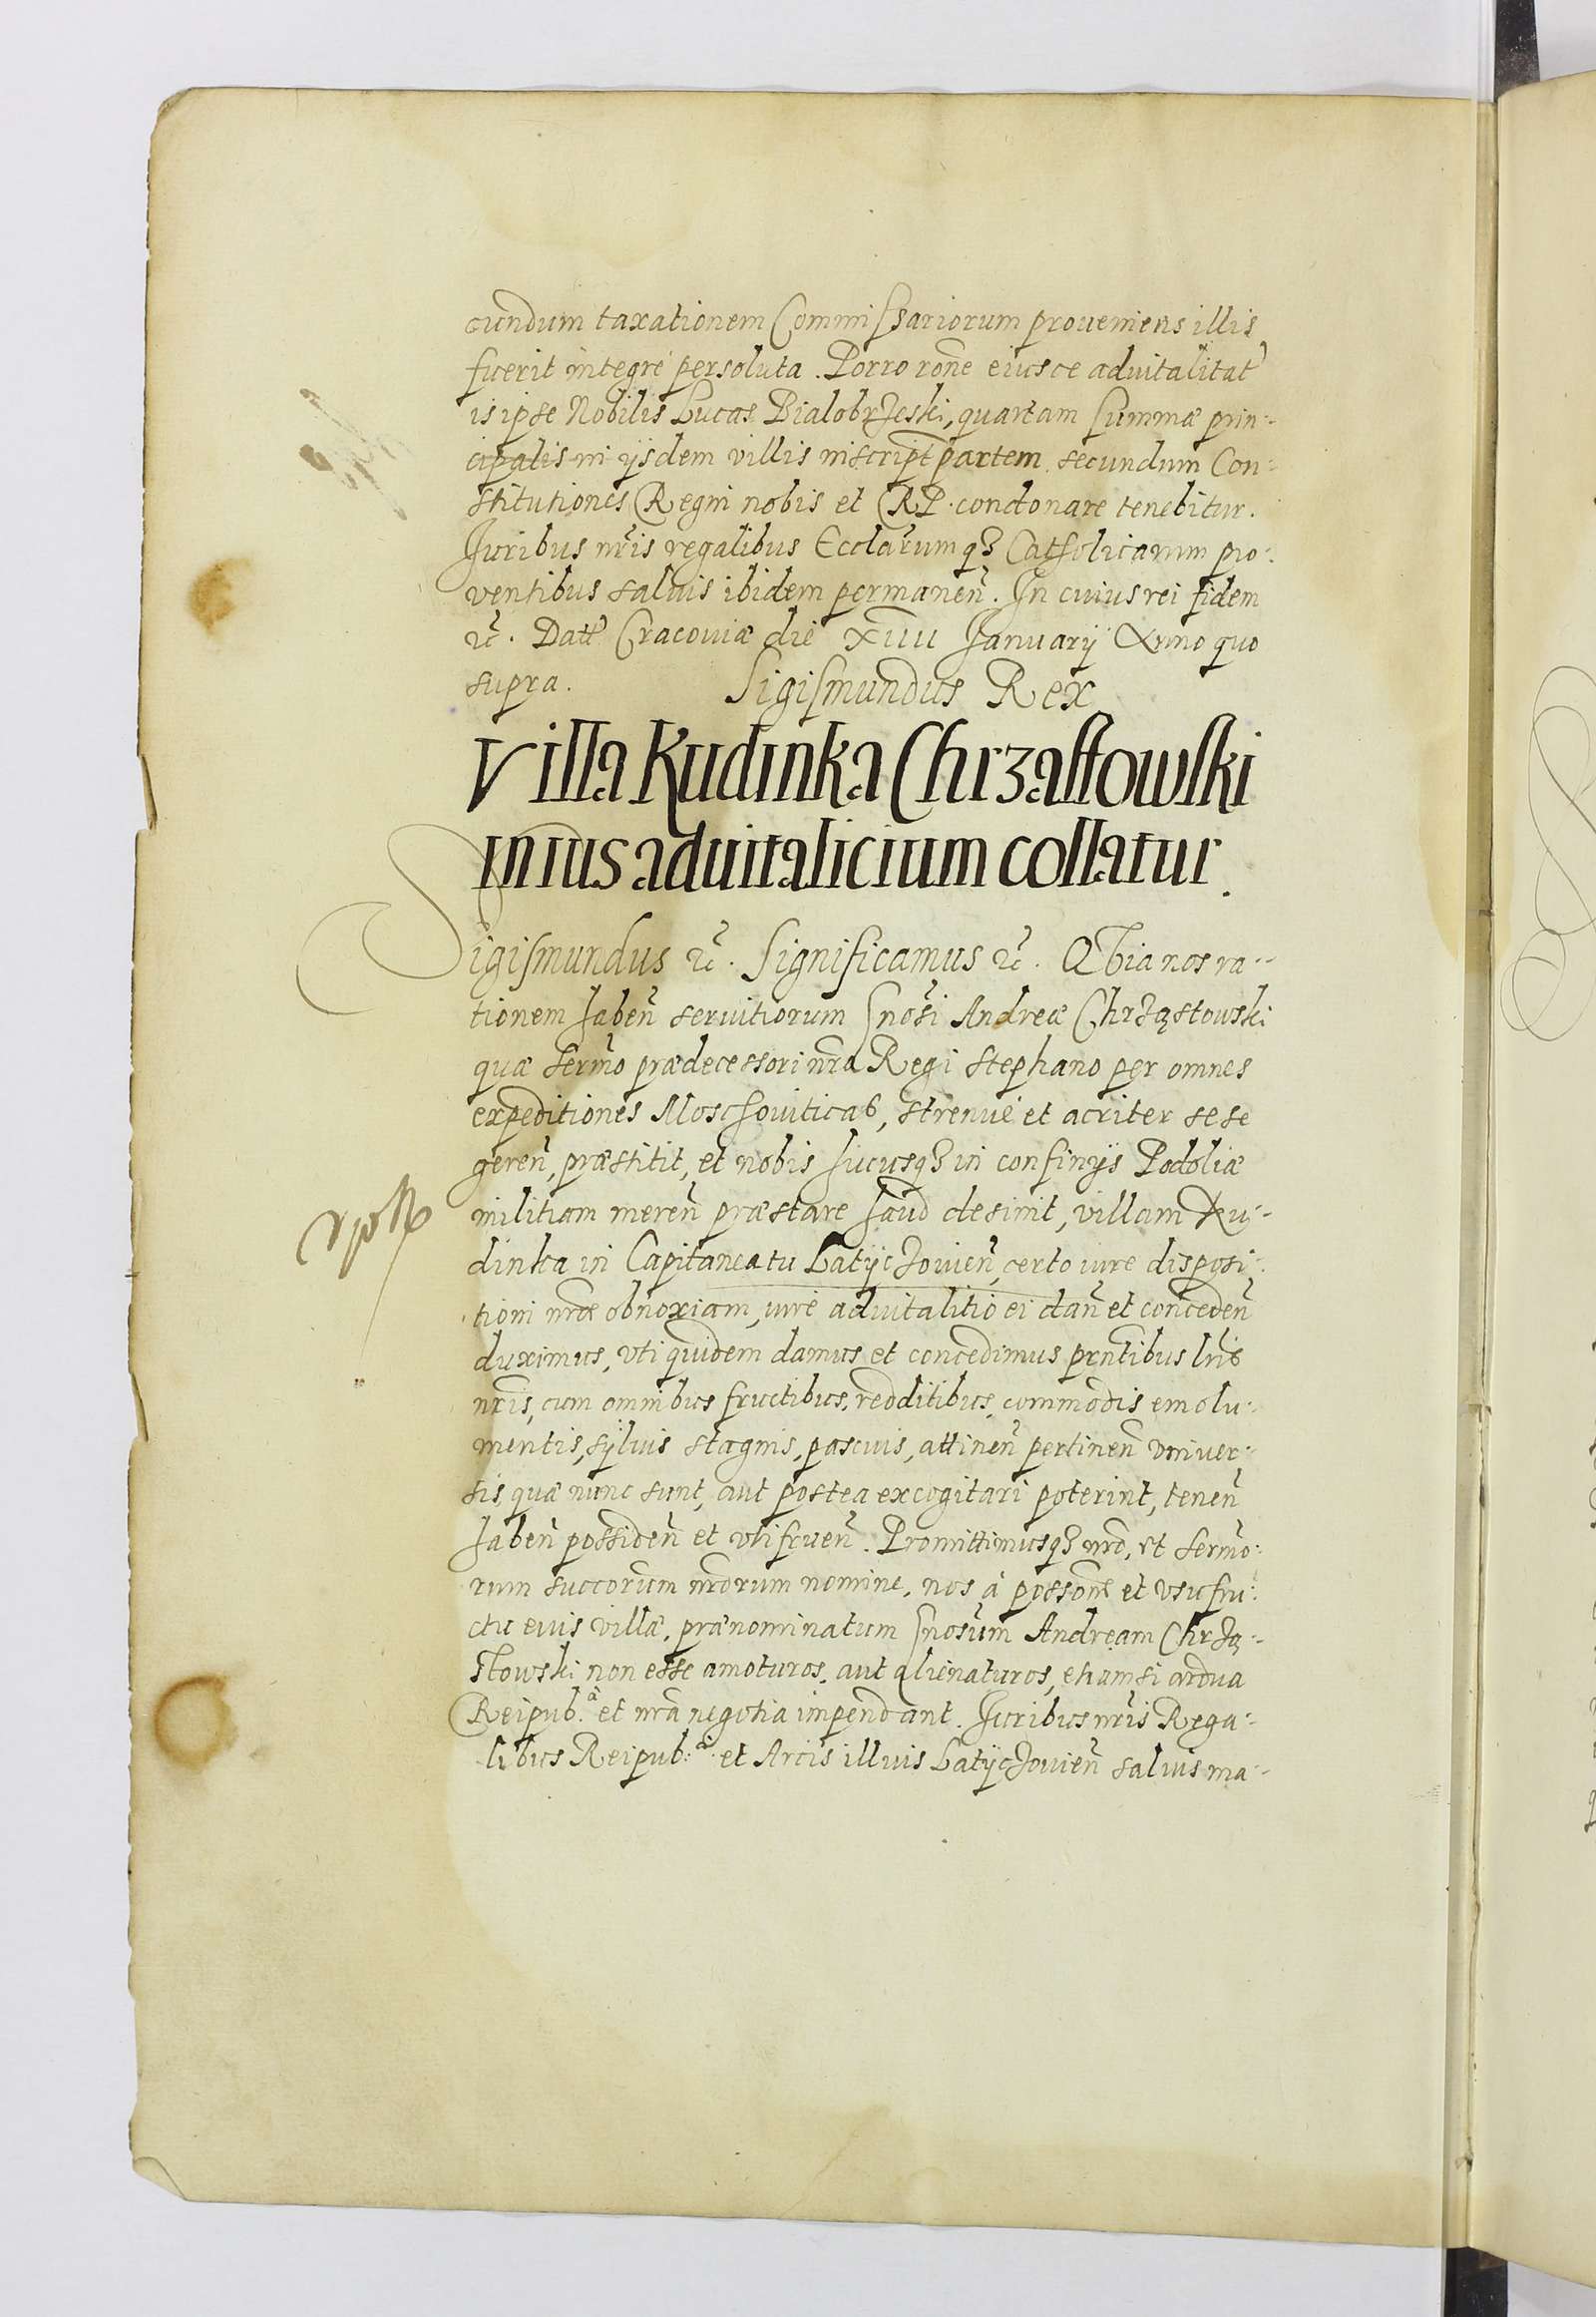 cundum taxationem Commissariorum proveniens illis
fuerit integre persoluta. Porro rone eiusce advitalitat
is ipse Nobilis Lucas Bialobrzeski, quartam summæ prin-
cipalis in ijsdem villis inscript partem secundum Con-
stitutiones Regni nobis et RP. condonare tenebitur.
Iuribus nris regalibus Ecclarumq3 Catholicarum pro-
ventibus salvis ibidem permanen. In cuius rei fidem
etc. Datt Cracoviæ die xiiii Ianuarij Anno quo
supra. Sigismundus Rex
Villa Kudinka Chrzastowski
in ius advitalicium collatur.
Sigismundus etc. Significamus etc. Quia nos ra-
tionem haben servitiorum Gnosi Andreæ Chrząstowski
quæ sermo prædecessori nro Regi Stephano per omnes
expeditiones Moschoviticas, strenue et acriter sese
geren, præstitit, et nobis hucusq3 in confinijs Podoliæ
militiam meren præstare haud desinit, villam Ku-
dinka in Capitaneatu Latijczovien, certo iure disposi-
tioni nræ obnoxiam, iure advitalitio ei dan et conceden
duximus, vti quidem damus et concedimus prntibus lris
nris, cum omnibus fructibus, redditibus, commodis emolu-
mentis, sylvis stagnis, pascuis, attinen pertinen vniver-
sis, quæ nunc sunt, aut postea excogitari poterint, tenen
haben possiden et vtifruen. Promittimusq3 nro, et sermo-
rum succorum nrorum nomine, nos à possone et vsufru-
ctu eius villæ, prænominatum Gnosum Andream Chrzą-
stowski non esse amoturos, aut alienaturos, etiamsi ardua
Reipub. et nra negotia impendant. Iuribus nris Rega-
libus Reipub. et Arcis illius Latijczovien salvis ma-